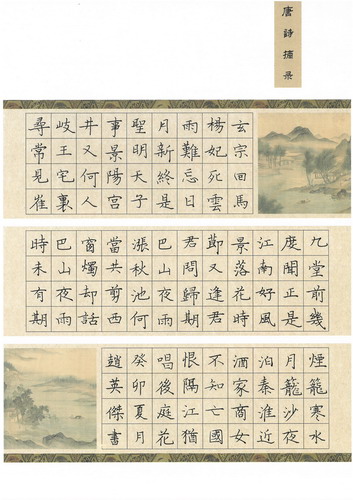 唐詩
玄宗回馬
楊妃死雲
雨難忘日
月新終是
聖明天子
事景陽宮
井又何人
岐王宅裏
尋常見崔
九堂前幾
度聞正是
江南好風
景落花時
節又逢君
君問歸期
巴山夜雨
漲秋池何
當共剪西
窗燭却話
巴山夜雨
時未有期
煙籠寒水
月籠沙夜
泊秦淮近
酒家商女
不知亡國
恨隔江猶
唱後庭花
癸卯夏月
趙英傑書